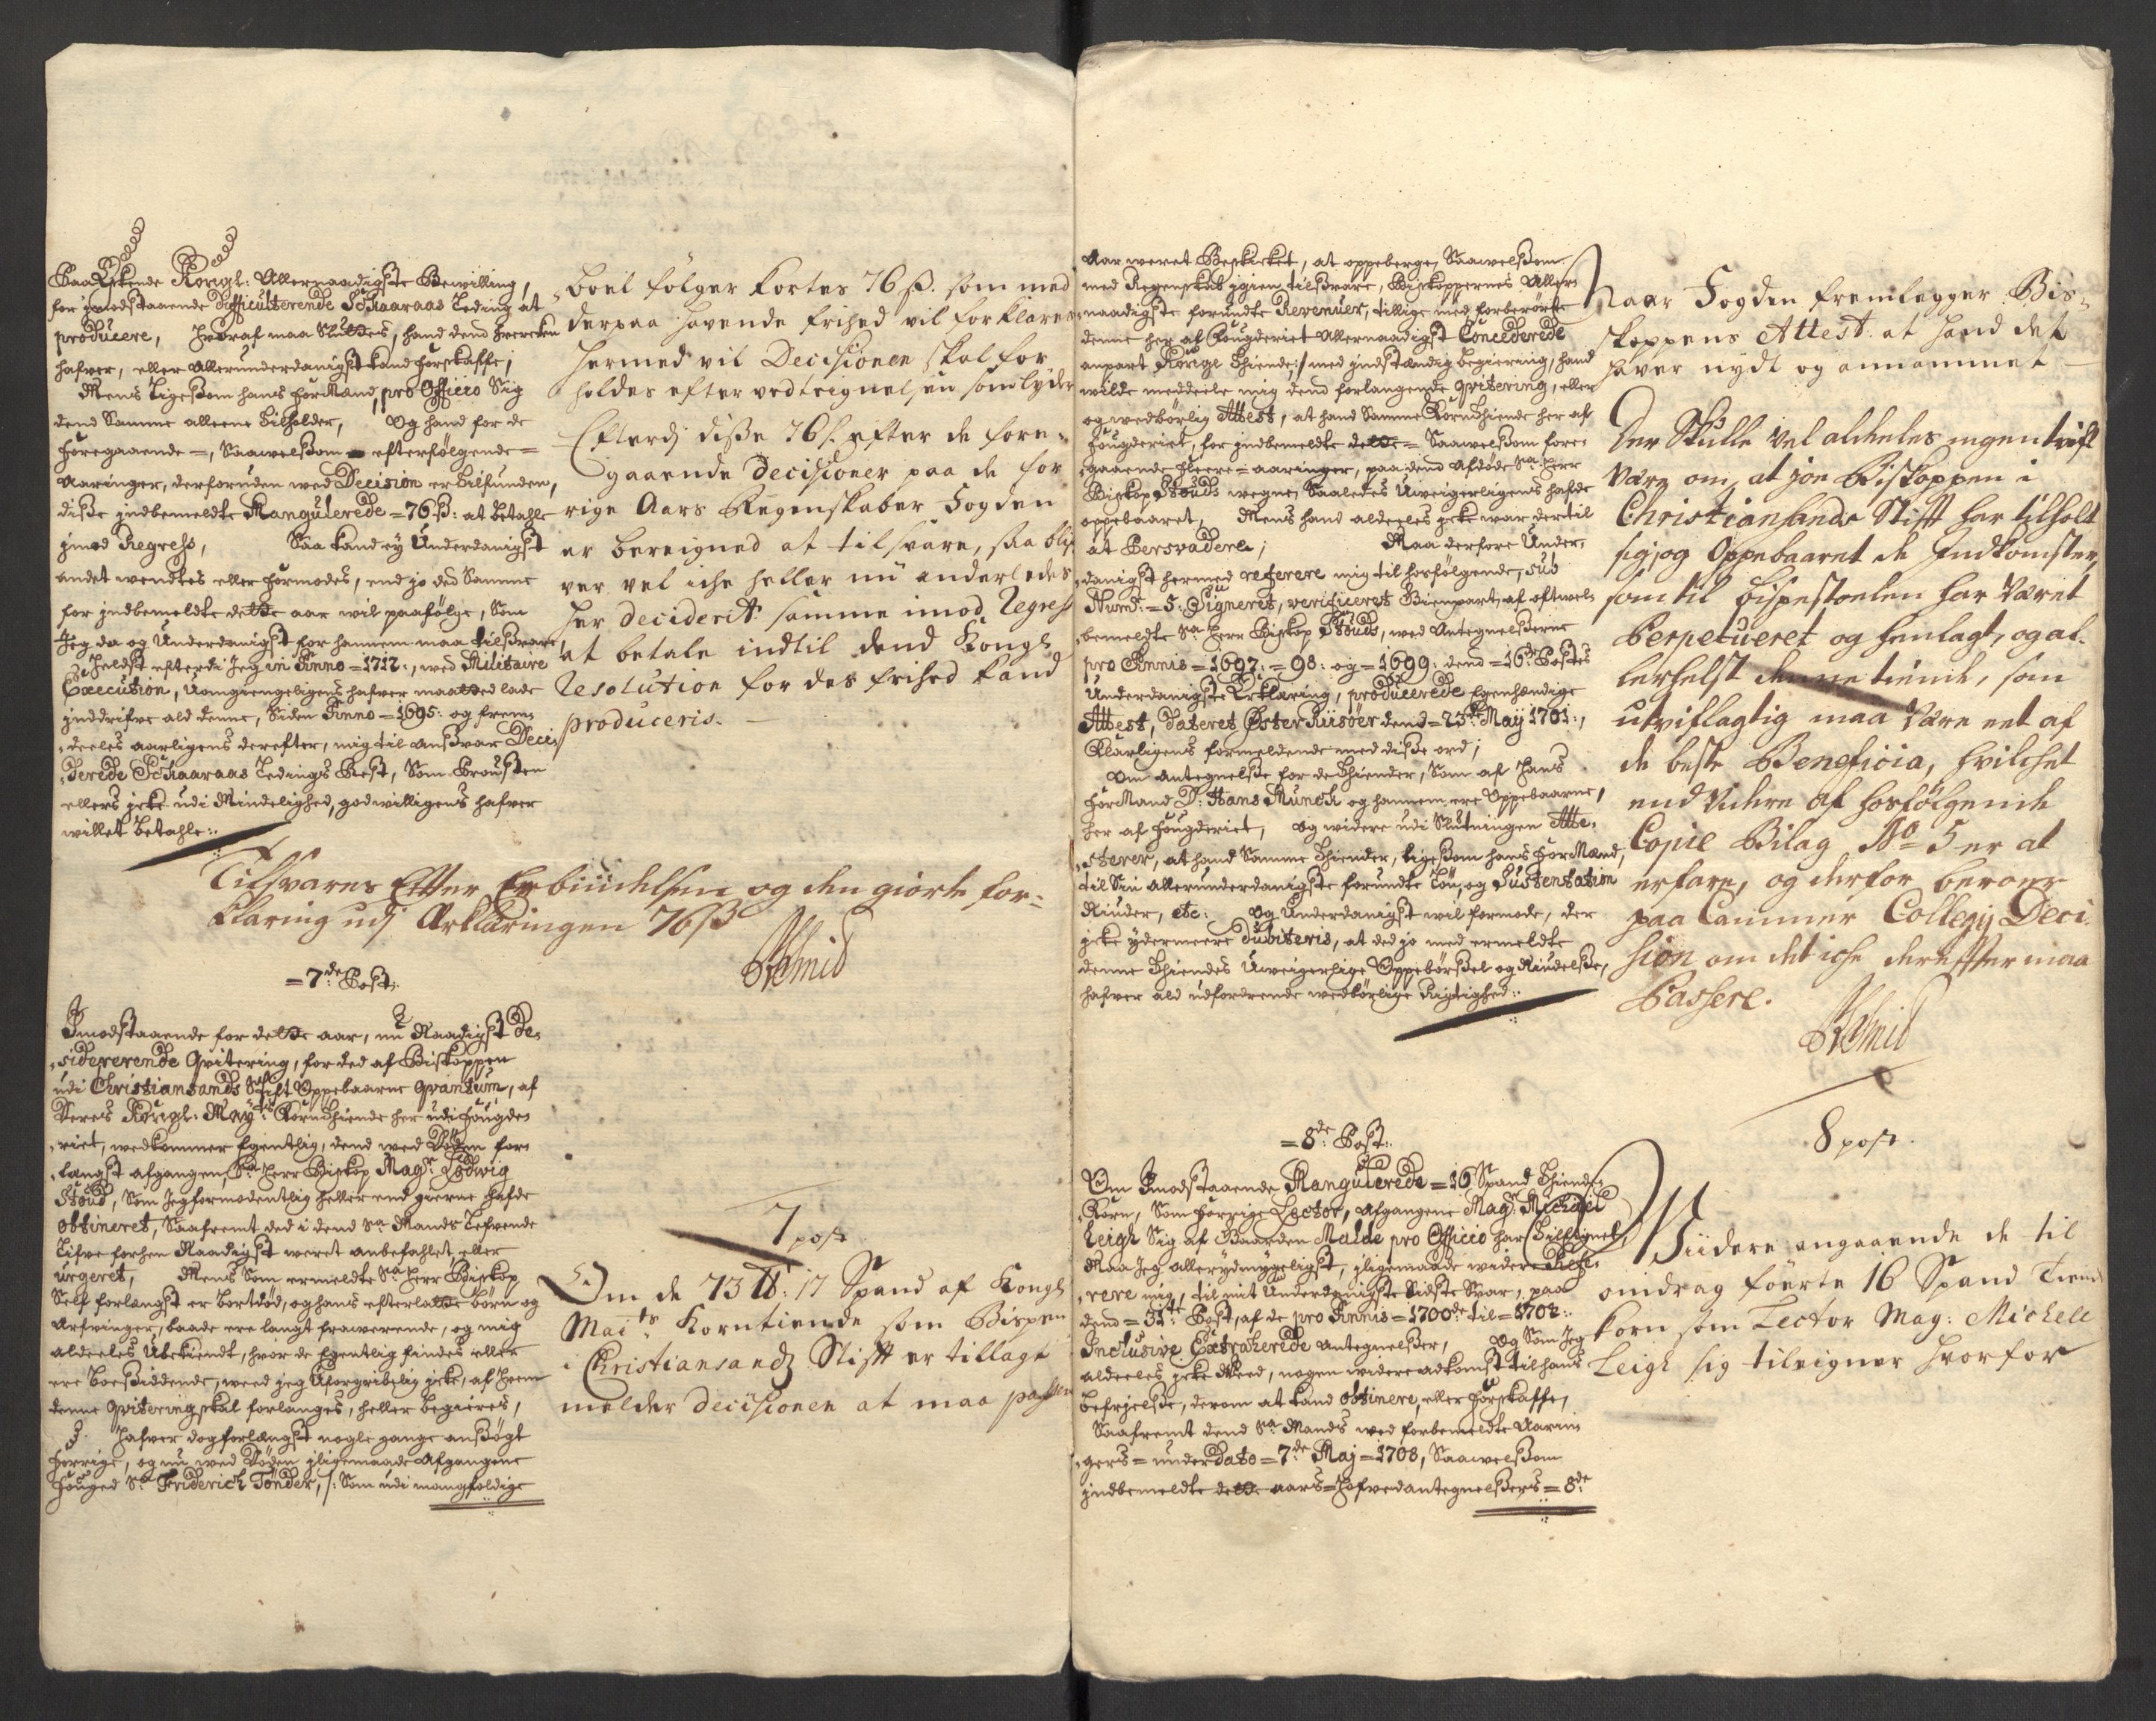 Paa Eskende Kongl: Allernaadigste Bewilling,
for imodstaaende Difficulterende Schaaraas Leding at
producere, hvoraf maa Sluttes, hand dend hvercken
hafver, eller Allerunderdanigst kand forskaffe;
Mens Ligesom hans forMand, pro Officio Sig
dend Samme alleene Tilholder, Og hand for de
foregaaende =, Saawelsom = efterfølgende =
Aaringer, derforuden wed Decision er Tilfunden,
disse indbemeldte Mangulerede = 76 ß: at betahle
imod Regress, Saa kand ey Underdanigst
andet wendtes eller formodes, end jo ded Samme
for indbemeldte dette aar wil paafølge, Som
Jeg da og Underdanigst for hannem maa tilsvare
Heldst efterdi Jeg in Anno = 1712:, wed Militaire
Execution, Uomgiengeligens hafver maatted lade
inddrifve ald denne, Siden Anno = 1695: og frem=
=deeles aarligens derefter, mig til ansvar Deci=
=derede Schaaraas Ledings Rest, Som Prousten
ellers icke udi Mindelighed, godwilligens hafver
willet betahle:
Tilsvares Efter Erbiudelsen og den giorte for=
klaring udj Ærklæringen 76 ß
= 7de: Post:
Imodstaaende for dette aar, nu Naadigst De=
=sidererende Qvitering, for ded af Biskoppen
udi Christiansands Stift Oppebaarne Qvantum, af
Deres Kongl: Mayts: KornThiende her udi fougde=
=riet, wedkommer Egentlig, dend wed Døden for=
=længst afgangen Sa: Herr Biskop Magr: Ludwig
Stoud, Som Jeg formodentlig heller end gierne hafde
obtineret, Saafremt ded i dend Sa: Mands Lefvende
Lifve forhen Naadigst weret anbefahlet eller
urgeret, Mens Som ermeldte Sa: Herr Biskop
Self forlængst er bortdød, og hans efterlatte børn og
Arfvinger, baade ere langt frawerende, og mig
aldeeles Ubekiendt, hvor de Egentlig findes eller
ere boesiddende, weed jeg Uforgribelig icke, af hvem
denne Qvitering skal forlanges, heller begieres,
J. hafver dog forlængst nogle gange ansøgt
forrige, og nu wed Døden iligemaade Afgangene
fouged Sr: Friderich Tønder, /: Som udi mangfoldige
boel følger Kortes 76 ß. som med
derpaa havende frihed vil forklares
hermed vil Decisionen skal for
holdes efter vedtegnelsen som lyder
Efterdj disse 76 ß. efter de fore=
gaaende Decisioner paa de for
rige Aars Regenskaber Fogden
er bereigned at tilsvare, saa bli=
ver vel iche heller nu anderledes
her deciderit samme imod Regress
at betale indtil dend Kongl:
Resolution for des frihed kand
produceris.
7 post
Om de 73 tt: 17 Spand af Kongl:
Maits: Korntiende som Bispen
i Christiansandz Stift er tillagt
melder Decisionen at maa passere
Aar weret Beskicket, at oppeberge, Saawelsom
med Regenskab igien tilsvare, Biskoppernes Aller=
=naadigste forundte Revenuer, tillige med forberørte
denne her af fougderiet Allernaadigst Concederede
anpart Kongl Thiende:/ med indstændig begiering, hand
wilde meddeele mig dend forlangende Qvitering, eller
og wedbørlig Attest, at hand Samme KornThiende her af
fougderiet, for indbemeldte dette = Saawelsom fore=
=gaaende fleere = aaringer, paa dend Afdøde Sa: Herr
Biskop Stouds wegne, Saaledes Uweigerligens hafde
oppebaaret, Mens hand aldeeles icke war dertil
at Persvadere; Maa derfore Under=
=danigst hermed referere mig til hosfølgende, sub
Num: = 5. Signerit, verificeret Gienpart, af oftwel=
=bemeldte Sa: Herr Biskop Stouds, wed Antegnelserne
pro Annis = 1697: = 98: og = 1699: dend = 16de: Postes
Underdanigste Erklæring, producerede Egenhændige
Attest, Dateret Øster Riisøer dend = 23de: May 1701:,
Klarligens formeldende med disse ord;
Om antegnelse for de Thiender, Som af hans
forMand D: Hans Munch og hannem ere Oppebaarne,
her af fougderiet, og widere udi Slutningen Atte=
=sterer, at hand Samme Thiender, ligesom hans forMænd,
til Sin allerunderdanigste forundte Løn, og Sustentation
Niuder, etc: Og Underdanigst wil formode, der
icke ydermeere Dubiteris, at ded jo med ermeldte
denne Thiendes Uweigerlige Oppebørsel og Niudelse,
hafver ald udfordrende wedbørlige Rigtighed:
= 8de: Post:
Om Imodstaaende Mangulerede = 16 Spand Thiende=
=Korn, Som forrige Lector, Afgangene Magr: Michael
Leigh Sig af Gaarden Malde pro Officio har Tileignet
Maa Jeg allerydmygeligst, iligemaade widere Refe=
=rere mig, til mit Underdanigste Sidste Svar, paa
dend = 31te: Post, af de pro Annis = 1700de: til = 1702:
Inclusive Extraherede antegnelser, Og Som Jeg
aldeeles icke Weed, nogen widere adkomst til hans
befrielse, derom at kand obtinere, eller forskaffe,
Saafremt dend Sa: Mands wed forbemeldte Aarin=
=gers = under Dato = 7de: Maj = 1708, Saawelsom
indbemeldte dette aars = Hofvedantegnelsers = 8de:
Naar Fogden fremlegger Bis=
skoppens Attest at hand det
haver nydt og annammet
Der Skulle vel aldeles ingen tvifl
være om, at joe Biskoppen i
Christiansands Stift har tilholt
sig, og Oppebaaret de Indkomster,
som til bispestoelen har været
Perpetueret og henlagt, og al
lerhelst denne tiende, som
utviflagtig maa være eet af
de beste Beneficia, hvilchet
end videre af hosfølgende
Copie Bilag No 5 er at
erfare, og derfor beroer
paa Cammer Collegij Deci
sion om det iche derefter maa
Passere.
8 post.
Viidere angaaende de til
omdrag førte 16 Spand Tiend
korn som Lector Mag: Michell
Leigh sig tileigner hvorfor